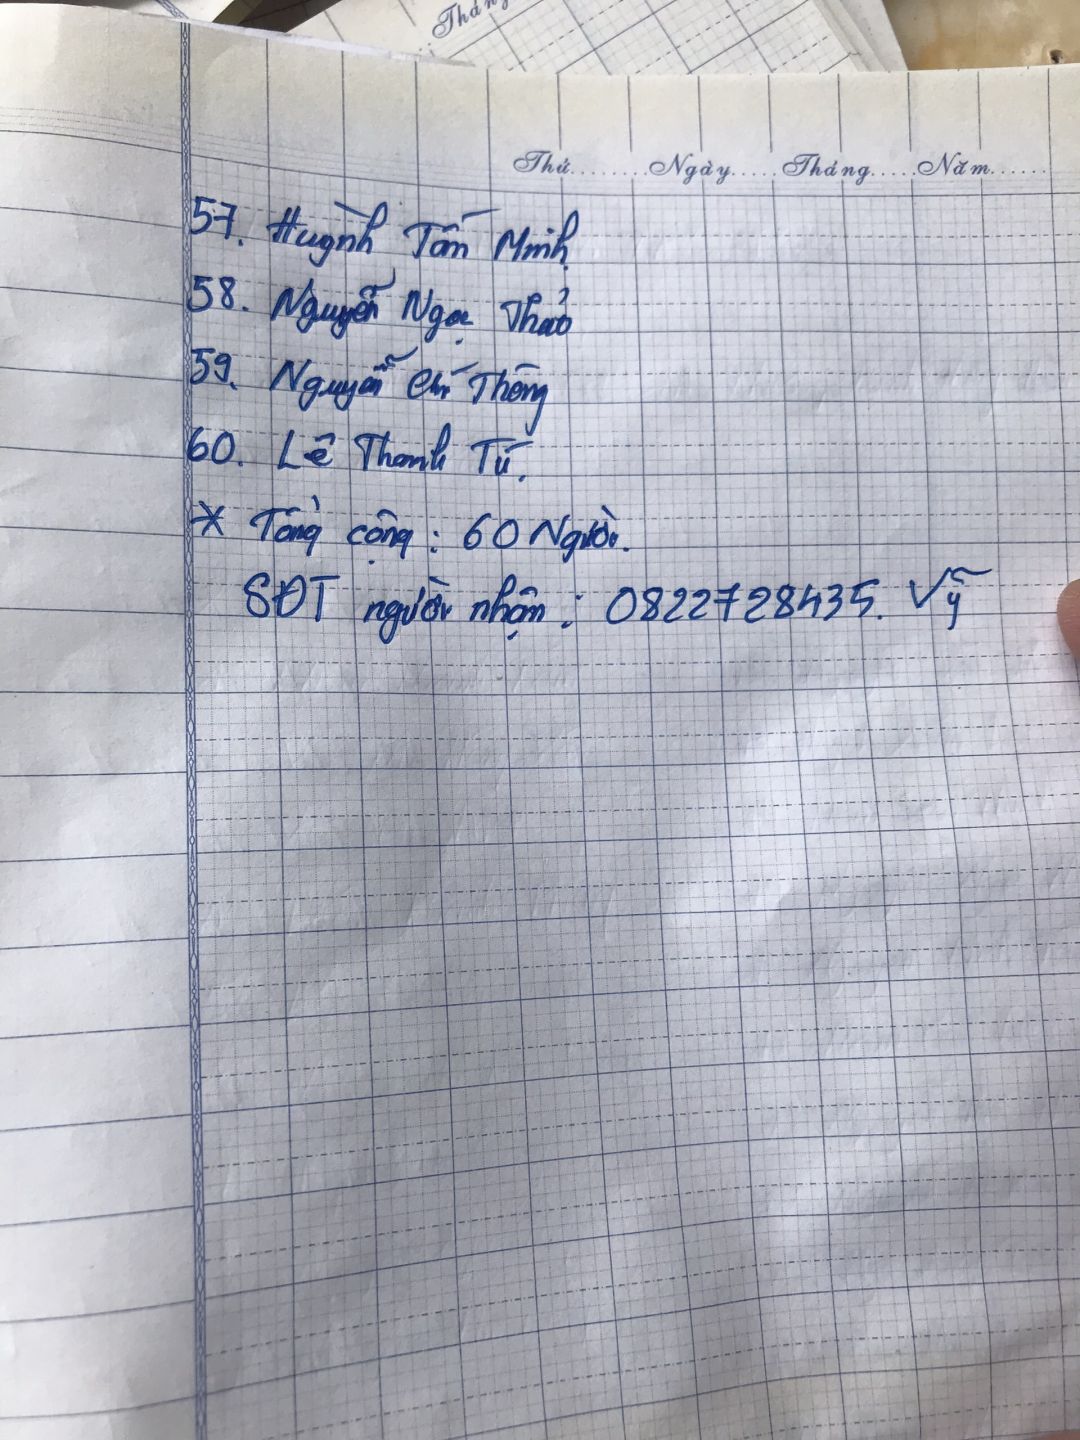 Tháng
Thứ........Ngày.....Tháng.....Năm......
57. Huỳnh Tấn Minh
58. Nguyễn Ngọc Thảo
59. Nguyễn Chí Thông
60. Lê Thanh Tú.
* Tổng cộng : 60 Người.
SĐT người nhận : 0822728435. Vỹ